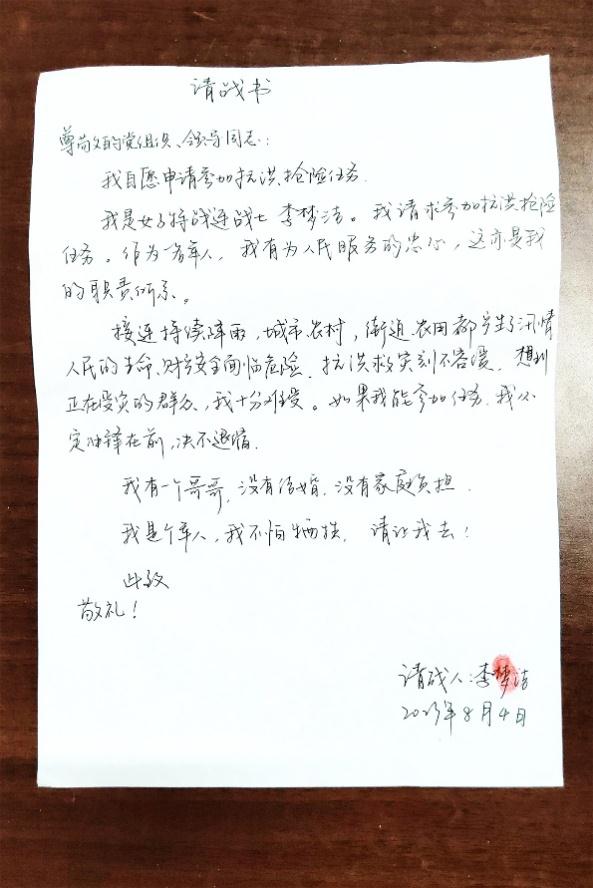 请战书
尊敬的党组织、领导同志：
我自愿申请参加抗洪抢险任务.
我是女子特战连战士李梦洁。我请求参加抗洪抢险
任务。作为一名军人，我有为人民服务的忠心，这亦是我
的职责所系。
接连持续降雨，城市、农村，街道、农田都产生了汛情
人民的生命、财产安全面临危险.抗洪救灾刻不容缓.想到
正在受灾的群众，我十分难受。如果我能参加任务.我必
定冲锋在前，决不退缩.
我有一个哥哥,没有结婚.没有家庭负担.
我是个军人，我不怕牺牲.请让我去！
此致
敬礼！
请战人：李梦洁
2023年8月4日